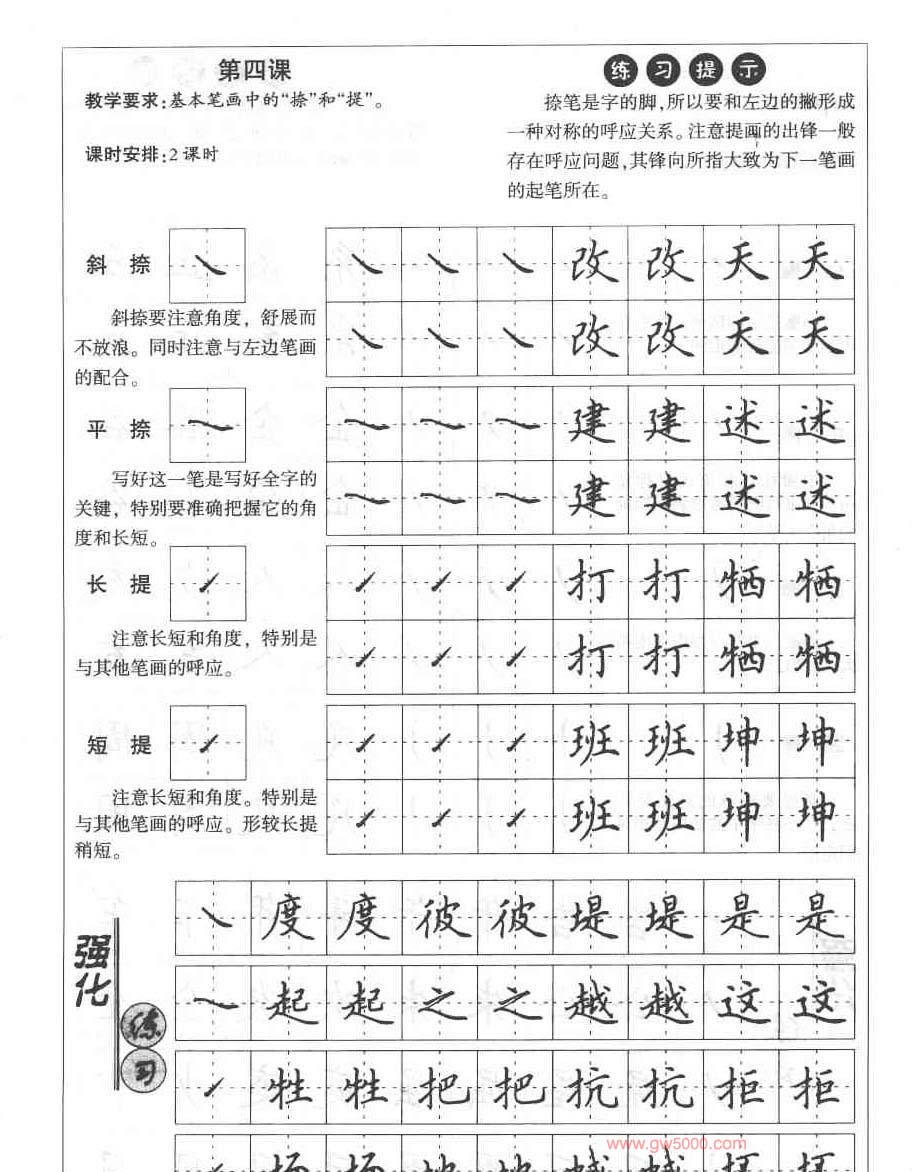 第四课
教学要求:基本笔画中的“捺”和“提”。
课时安排:2课时
练习提示
捺笔是字的脚,所以要和左边的撇形成
一种对称的呼应关系。注意提画的出锋一般
存在呼应问题,其锋向所指大致为下一笔画
的起笔所在。
斜 捺
斜捺要注意角度，舒展而
不放浪。同时注意与左边笔画
的配合。
改 改 天 天
改 改 天 天
平 捺
写好这一笔是写好全字的
关键，特别要准确把握它的角
度和长短。
建 建 述 述
建 建 述 述
长 提
注意长短和角度，特别是
与其他笔画的呼应。
打 打 牺 牺
打 打 牺 牺
短 提
注意长短和角度。特别是
与其他笔画的呼应。形较长提
稍短。
班 班 坤 坤
班 班 坤 坤
强化
练习
度 度 彼 彼 堤 堤 是 是
起 起 之 之 越 越 这 这
牲 牲 把 把 抗 抗 拒 拒
www.gw5000.com